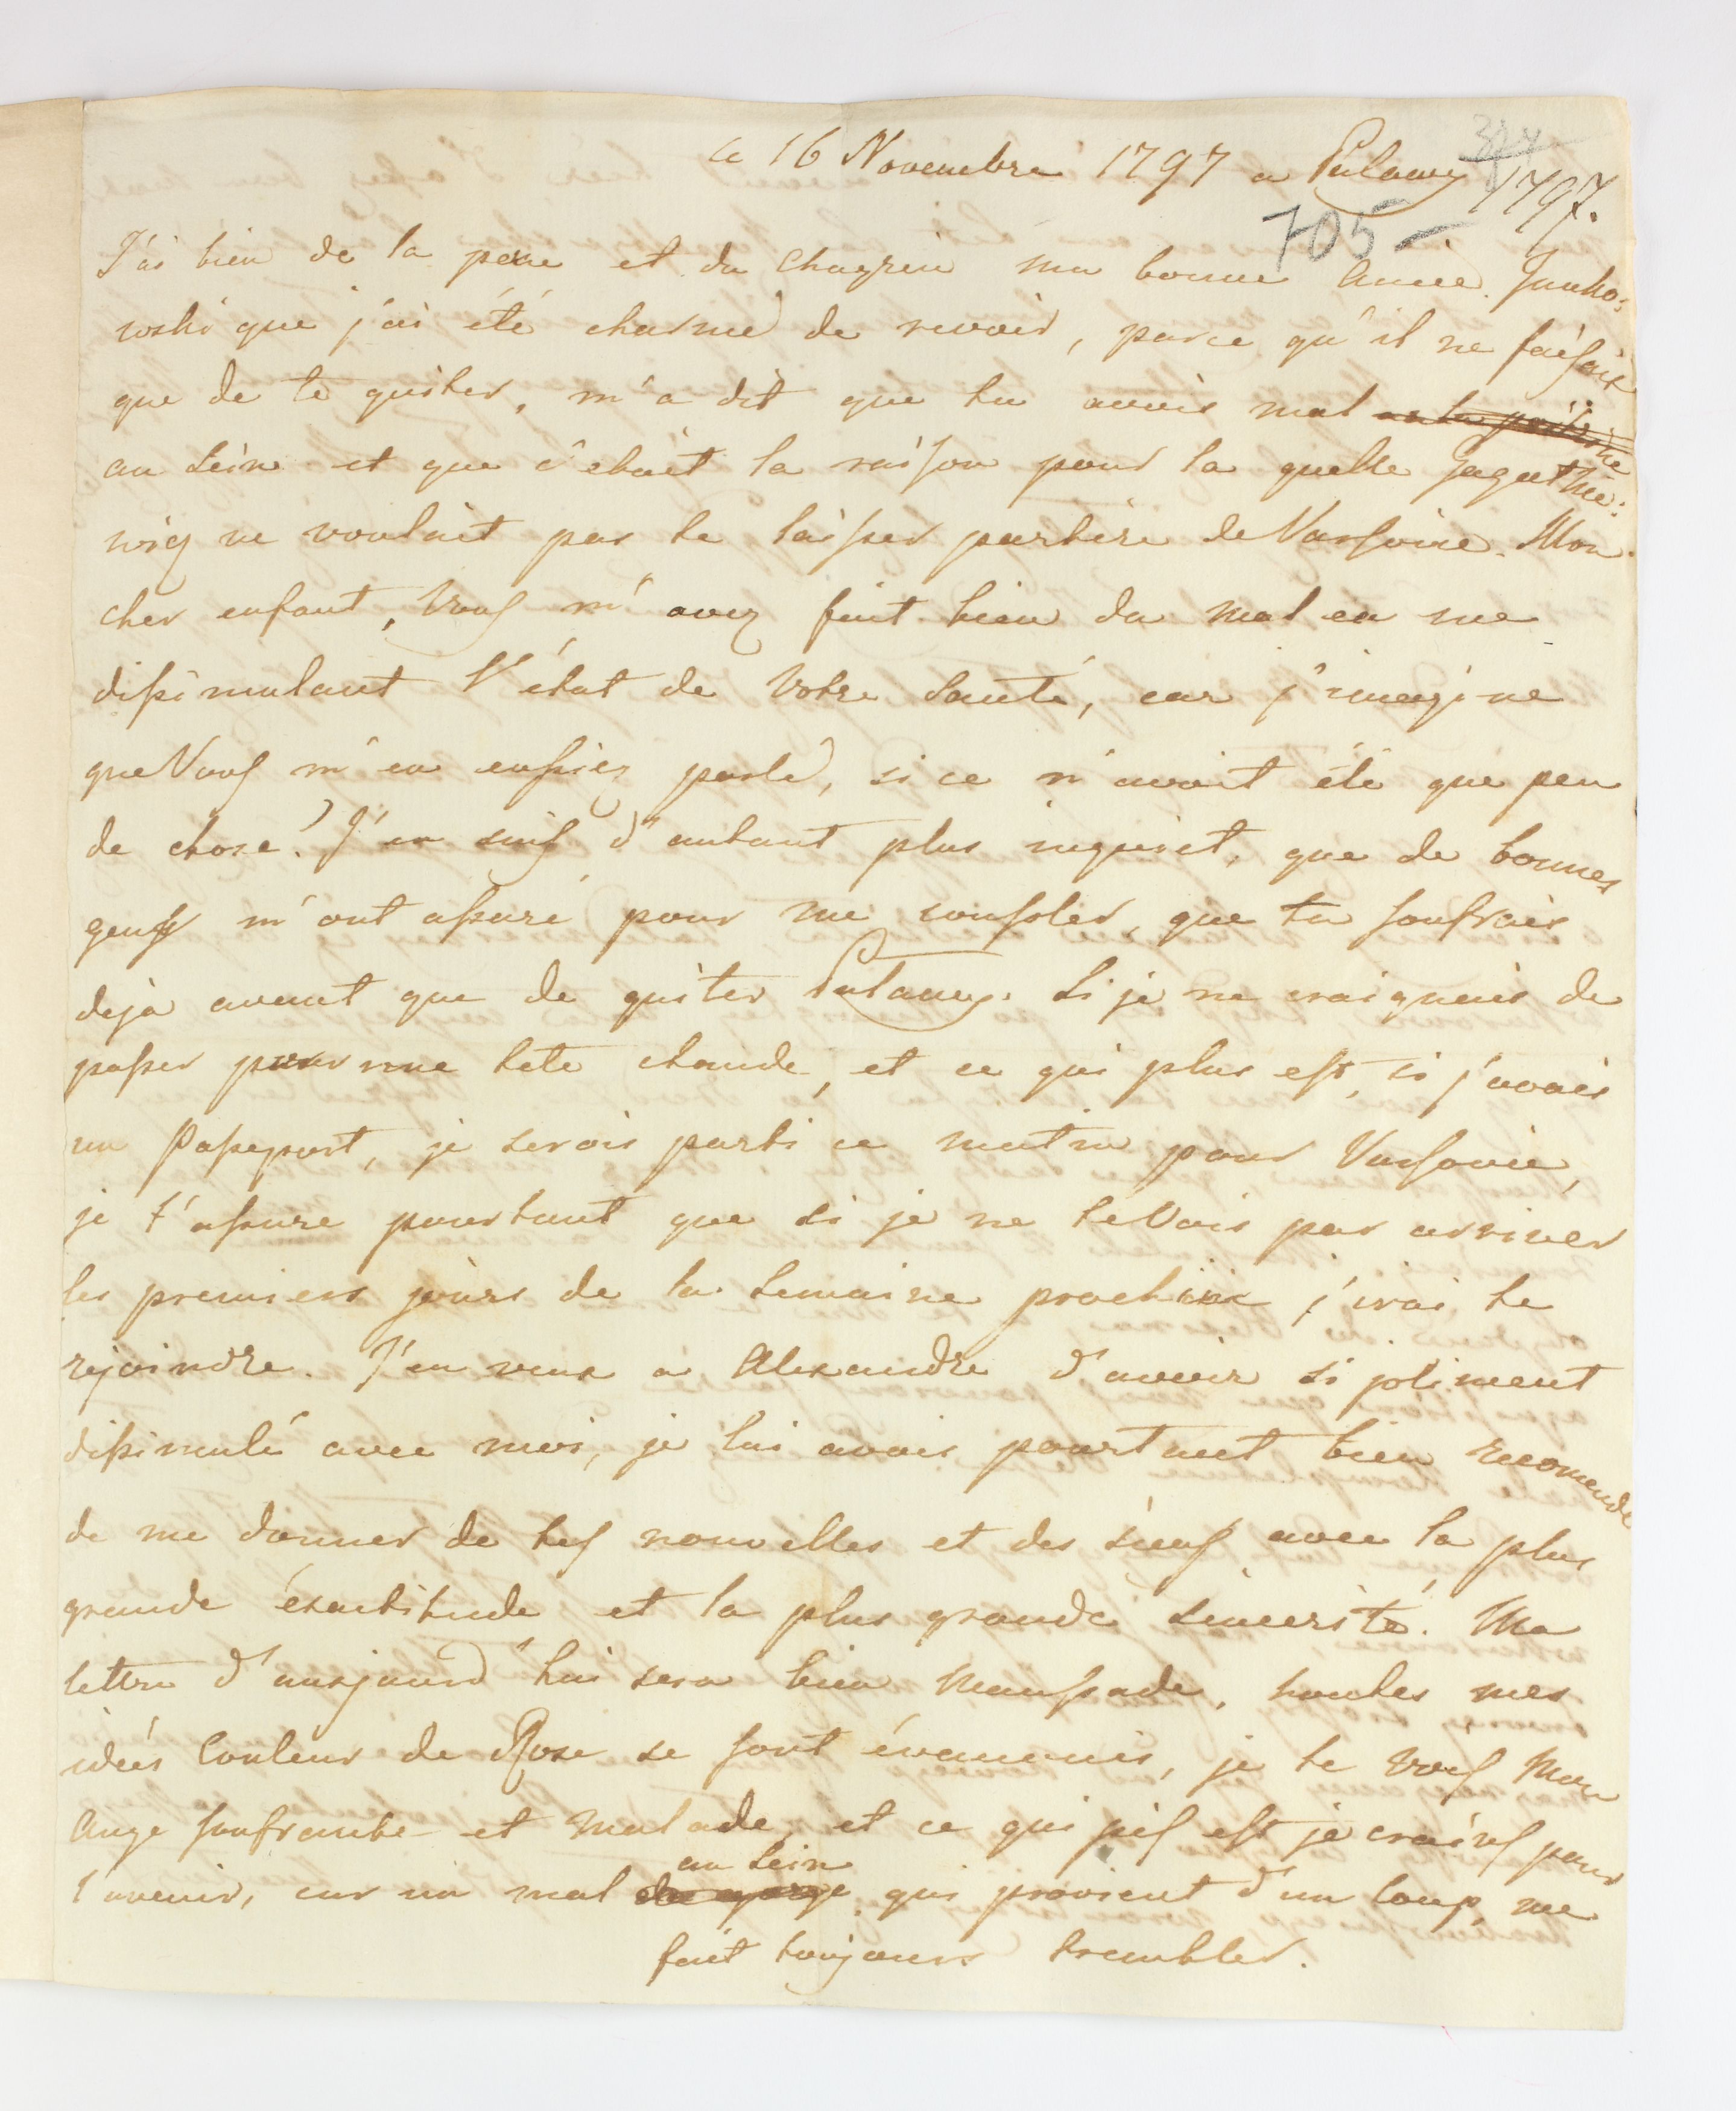 374
ce 16 Novembre 1797 a Pulawy 1797.
705 —
J'ai bien de la peine et du chagrin ma bonne Amie. Janko:
wski que j'ai été charmé de revoir, parce qu'il ne faisait
que de te quiter, m'a dit que tu avais mal a la poitrine
au sein et que c'étoit la raison pour la quelle Jagathie:
wicz ne voulait pas te laisser partire de Varsovie. Mon
cher enfant, Vous m'avez fait bien du mal en me
dissimulant l'état de Votre Santé, car j'imagine
que Vous m'en eussiez parlé, si ce n'avait été que peu
de chose! J'en suis d'autant plus inquiet, que de bonnes
gens m'ont assuré pour me consoler, que tu soufrais
deja avant que de quiter Pulawy. Si je ne craignais de
passer pour une tete chaude, et ce qui plus est, si j'avais
un Passeport, je serois parti ce matin pour Varsovie,
je t'assure pourtant que si je ne te Vois pas arriver
les premiers jours de la Semaine prochine j'irai te
rejoindre. J'en veux a Alexandre d'avoir si joliment
dissimulé avec moi, je lui avois pourtant bien recomendé
de me donner de tes nouvelles et des sienes avec la plus
grande éxactitude et la plus grande sincerité. Ma
lettre d'ausjourd'hui sera bien Maussade, toutes mes
idées Couleur de Rose se sont évanouies, je te vois Mon
Ange soufrante et Malade, et ce qui pis est je crains pour
l'avenir, car un mal au Sein qui provient d'un Coup, me
fait toujours trembler.